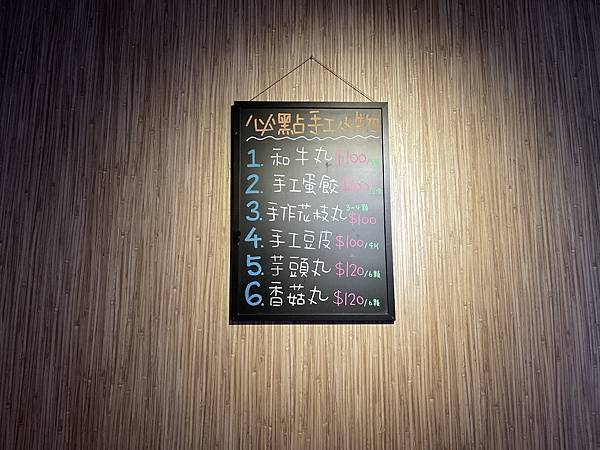 必點手工小物
1. 和牛丸 $100/
2. 手工蛋餃
3. 手作花枝丸 3~4顆 $100
4. 手工豆皮 $100/4片
5. 芋頭丸 $120/6顆
6. 香菇丸 $120/6顆